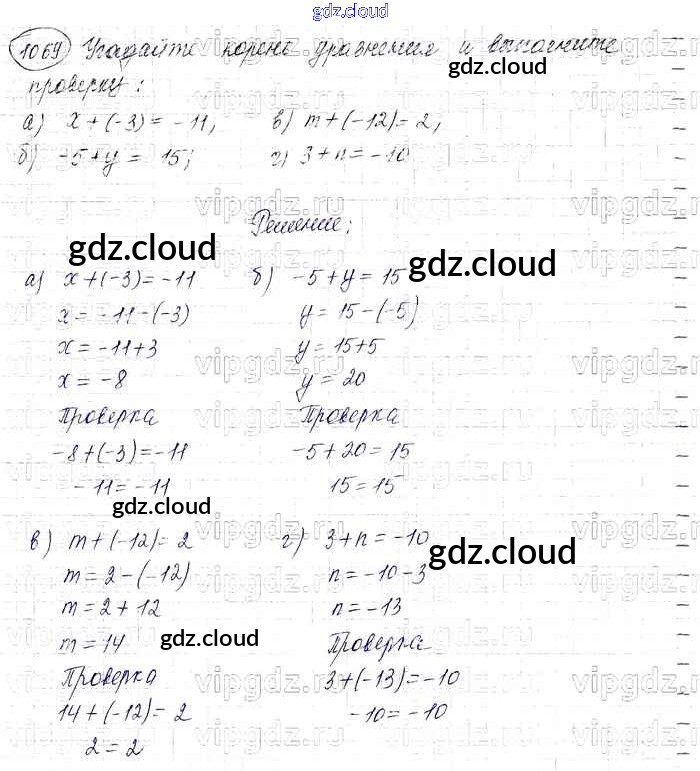 gdz.cloud
1069 Угадайте корень уравнения и выполните
проверку:
а) x+(-3)=-11, в) m+(-12)=2,
б) -5+y=15; г) 3+n=-10
Решение:
а) x+(-3)=-11
x=-11-(-3)
x=-11+3
x=-8
Проверка
-8+(-3)=-11
-11=-11
б) -5+y=15
y=15-(-5)
y=15+5
y=20
Проверка
-5+20=15
15=15
в) m+(-12)=2
m=2-(-12)
m=2+12
m=14
Проверка
14+(-12)=2
2=2
г) 3+n=-10
n=-10-3
n=-13
Проверка
3+(-13)=-10
-10=-10
gdz.cloud
gdz.cloud
gdz.cloud
gdz.cloud
gdz.cloud
gdz.cloud
vipgdz.ru